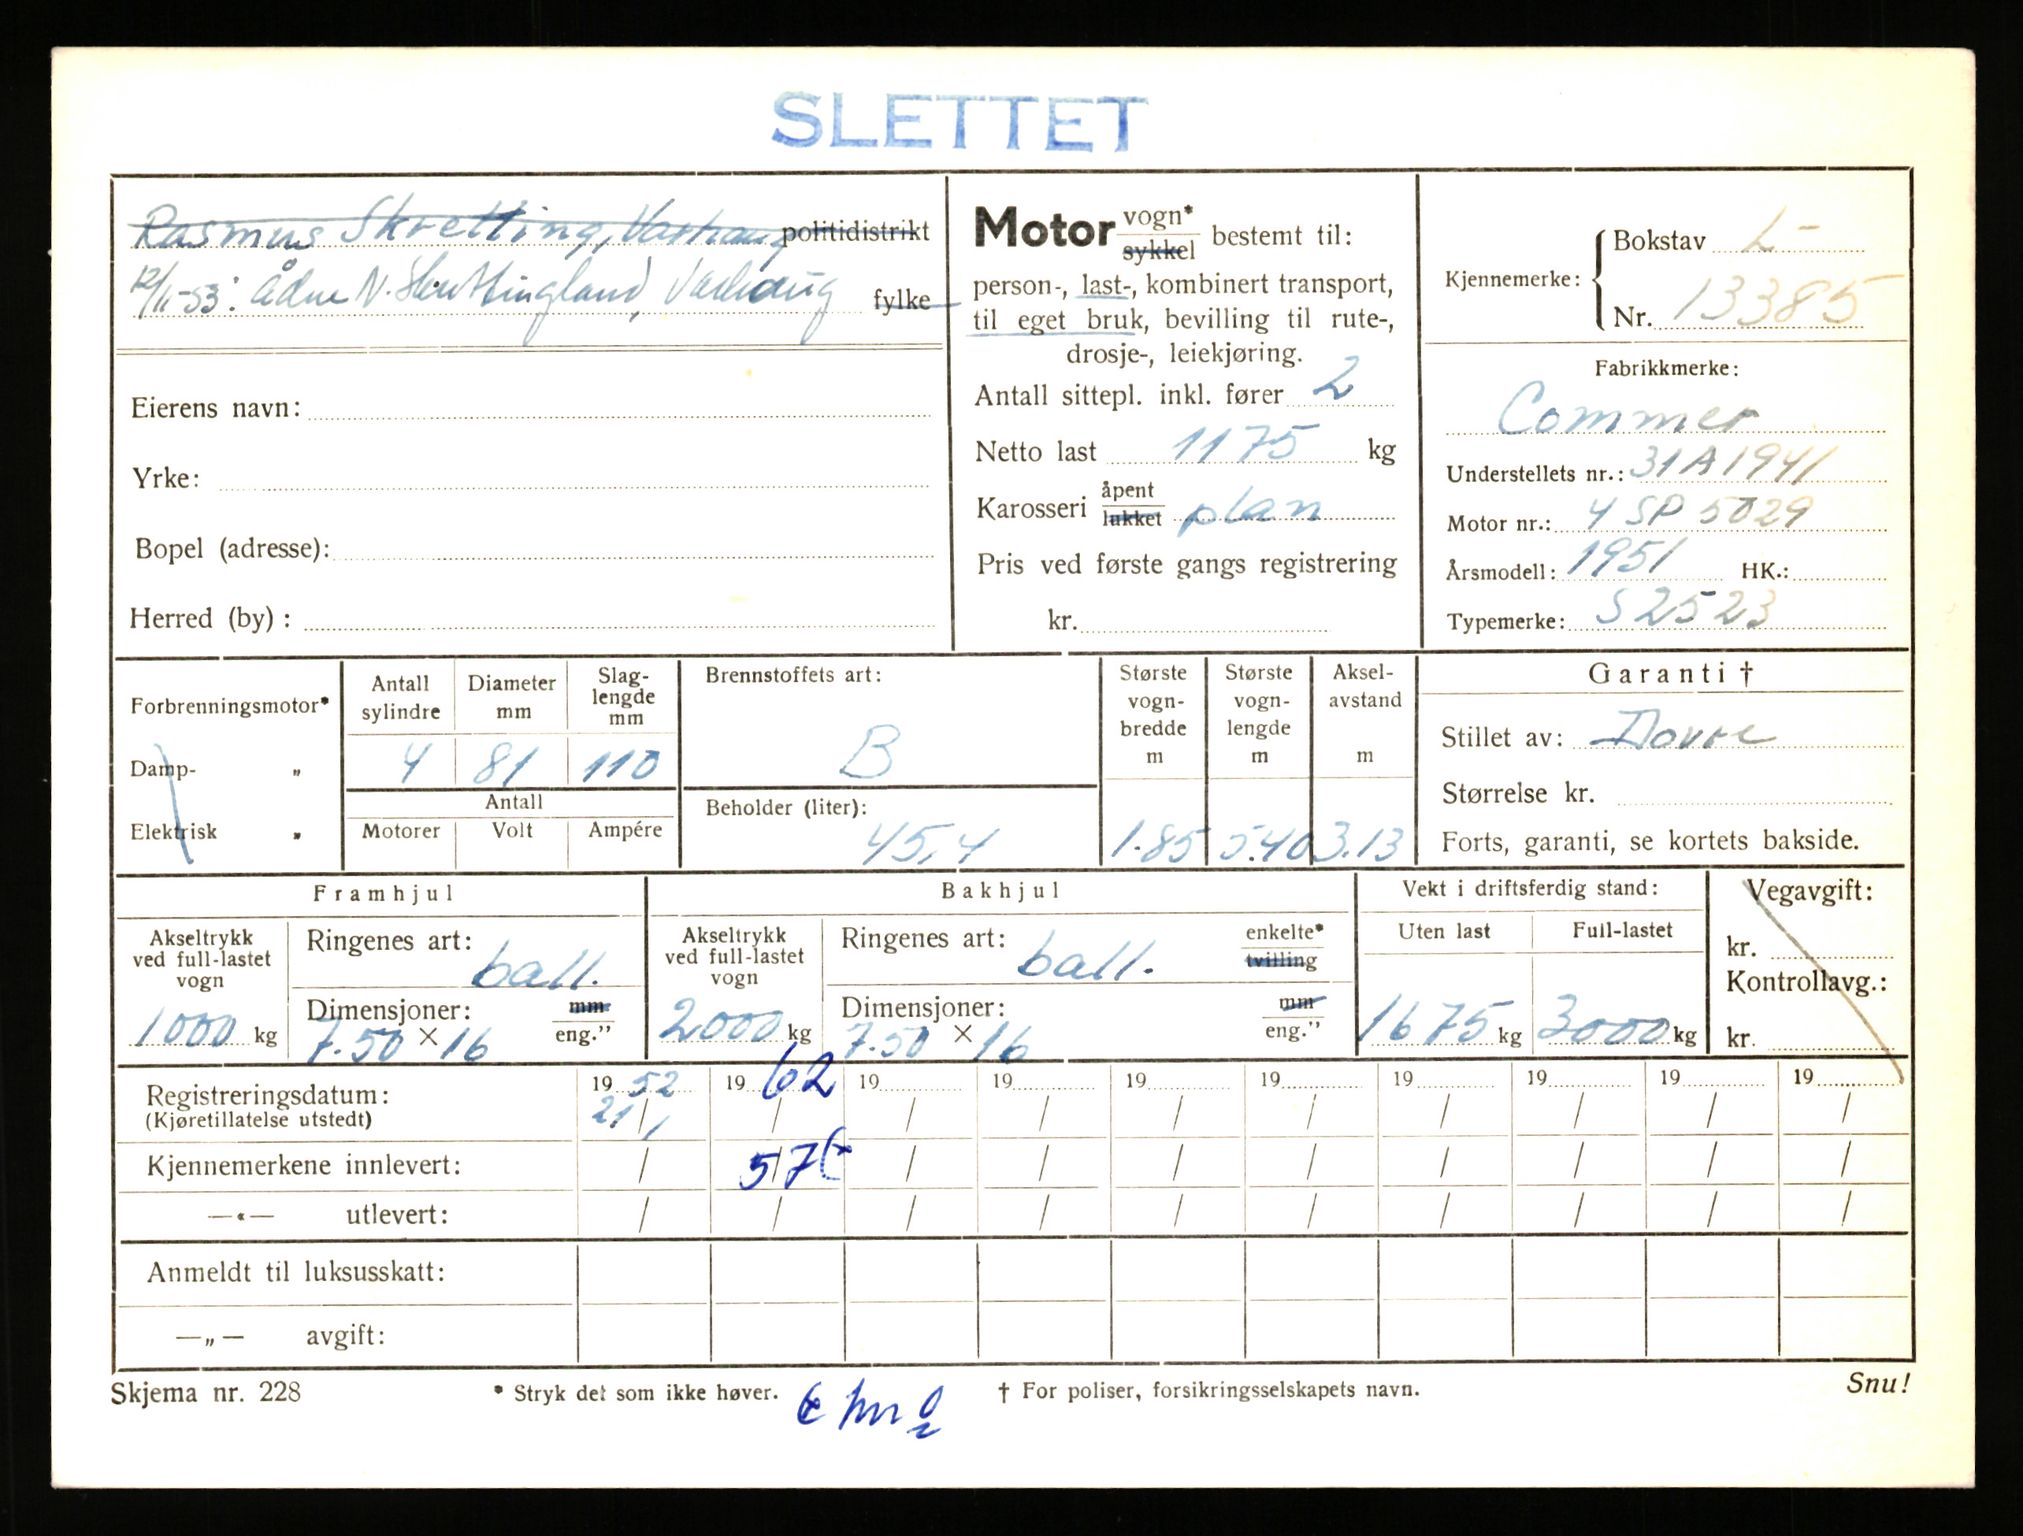 SLETTET
Rasmus Skretting, Varhaug politidistrikt
12/11-53: Ådne N. Skrettingland, Varhaug fylke
Eierens navn:
Yrke:
Bopel (adresse):
Herred (by) :
Motor vogn* sykkel bestemt til:
person-, last-, kombinert transport,
til eget bruk, bevilling til rute-,
drosje-, leiekjøring.
Antall sittepl. inkl. fører 2
Netto last 1175 kg
Karosseri åpent lukket plan
Pris ved første gangs registrering
kr.
Kjennemerke: Bokstav L-
Nr. 13385
Fabrikkmerke:
Commer
Understellets nr.: 31A1941
Motor nr.: 4 SP 5029
Årsmodell: 1951 HK.:
Typemerke: S2523
Forbrenningsmotor*
Damp- „
Elektrisk „
Antall sylindre Diameter mm Slag-lengde mm
4 81 110
Antall
Motorer Volt Ampére
Brennstoffets art:
B
Beholder (liter):
45,4
Største vogn-bredde m Største vogn-lengde m Aksel-avstand m
1.85 5.40 3.13
Garanti †
Stillet av: Dovre
Størrelse kr.
Forts, garanti, se kortets bakside.
Framhjul
Akseltrykk ved full-lastet vogn
1000 kg
Ringenes art: ball.
Dimensjoner: mm
7.50 × 16 eng."
Bakhjul
Akseltrykk ved full-lastet vogn
2000 kg
Ringenes art: ball. enkelte* tvilling
Dimensjoner: mm
7.50 × 16 eng."
Vekt i driftsferdig stand:
Uten last Full-lastet
1675 kg 3000 kg
Vegavgift:
kr.
Kontrollavg.:
kr.
Registreringsdatum: 19 52 19 62 19 19 19 19 19 19 19 19
(Kjøretillatelse utstedt) 21/1 / / / / / / / / /
Kjennemerkene innlevert: / 5/7 / / / / / / / /
—«— utlevert: / / / / / / / / / /
Anmeldt til luksusskatt:
—„— avgift:
Skjema nr. 228 * Stryk det som ikke høver. † For poliser, forsikringsselskapets navn. Snu!